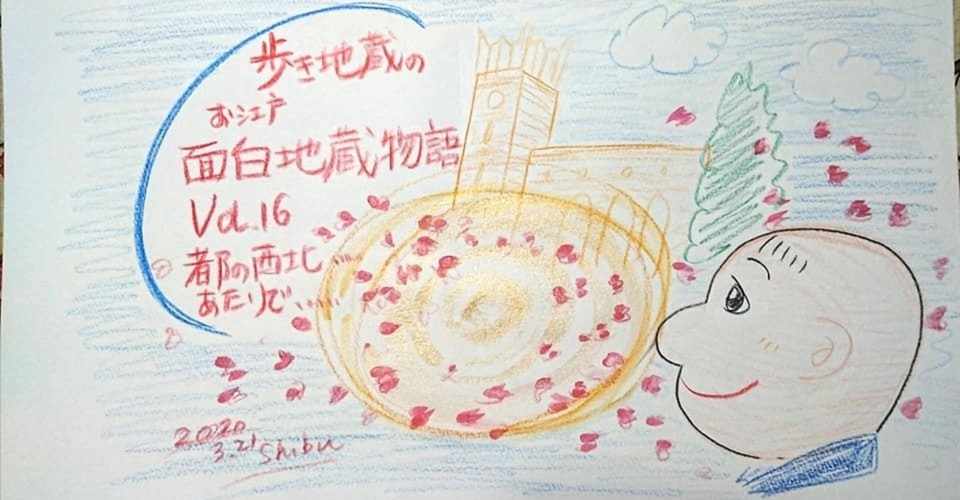 歩き地蔵の
お江戸
面白地蔵物語
Vol.16
都の西北
あたりで……
2020
3.21 Shibu